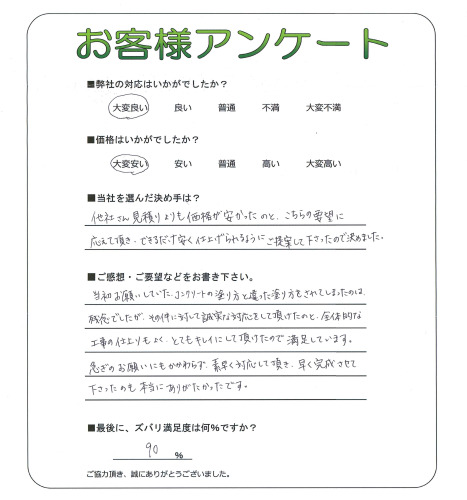 お客様アンケート
■弊社の対応はいかがでしたか？
大変良い 良い 普通 不満 大変不満
■価格はいかがでしたか？
大変安い 安い 普通 高い 大変高い
■当社を選んだ決め手は？
他社さん見積りよりも価格が安かったのと、こちらの要望に
応えて頂き、できるだけ安く仕上げられるようにご提案して下さったので決めました。
■ご感想・ご要望などをお書き下さい。
当初お願いしていた、コンクリートの塗り方と違った塗り方をされてしまったのは、
残念でしたが、その件に対して誠実な対応をして頂けたのと、全体的な
工事の仕上りもよく、とてもキレイにして頂けたので満足しています。
急ぎのお願いにもかかわらず、素早く対応して頂き、早く完成させて
下さったのも本当にありがたかったです。
■最後に、ズバリ満足度は何%ですか？
90 %
ご協力頂き、誠にありがとうございました。